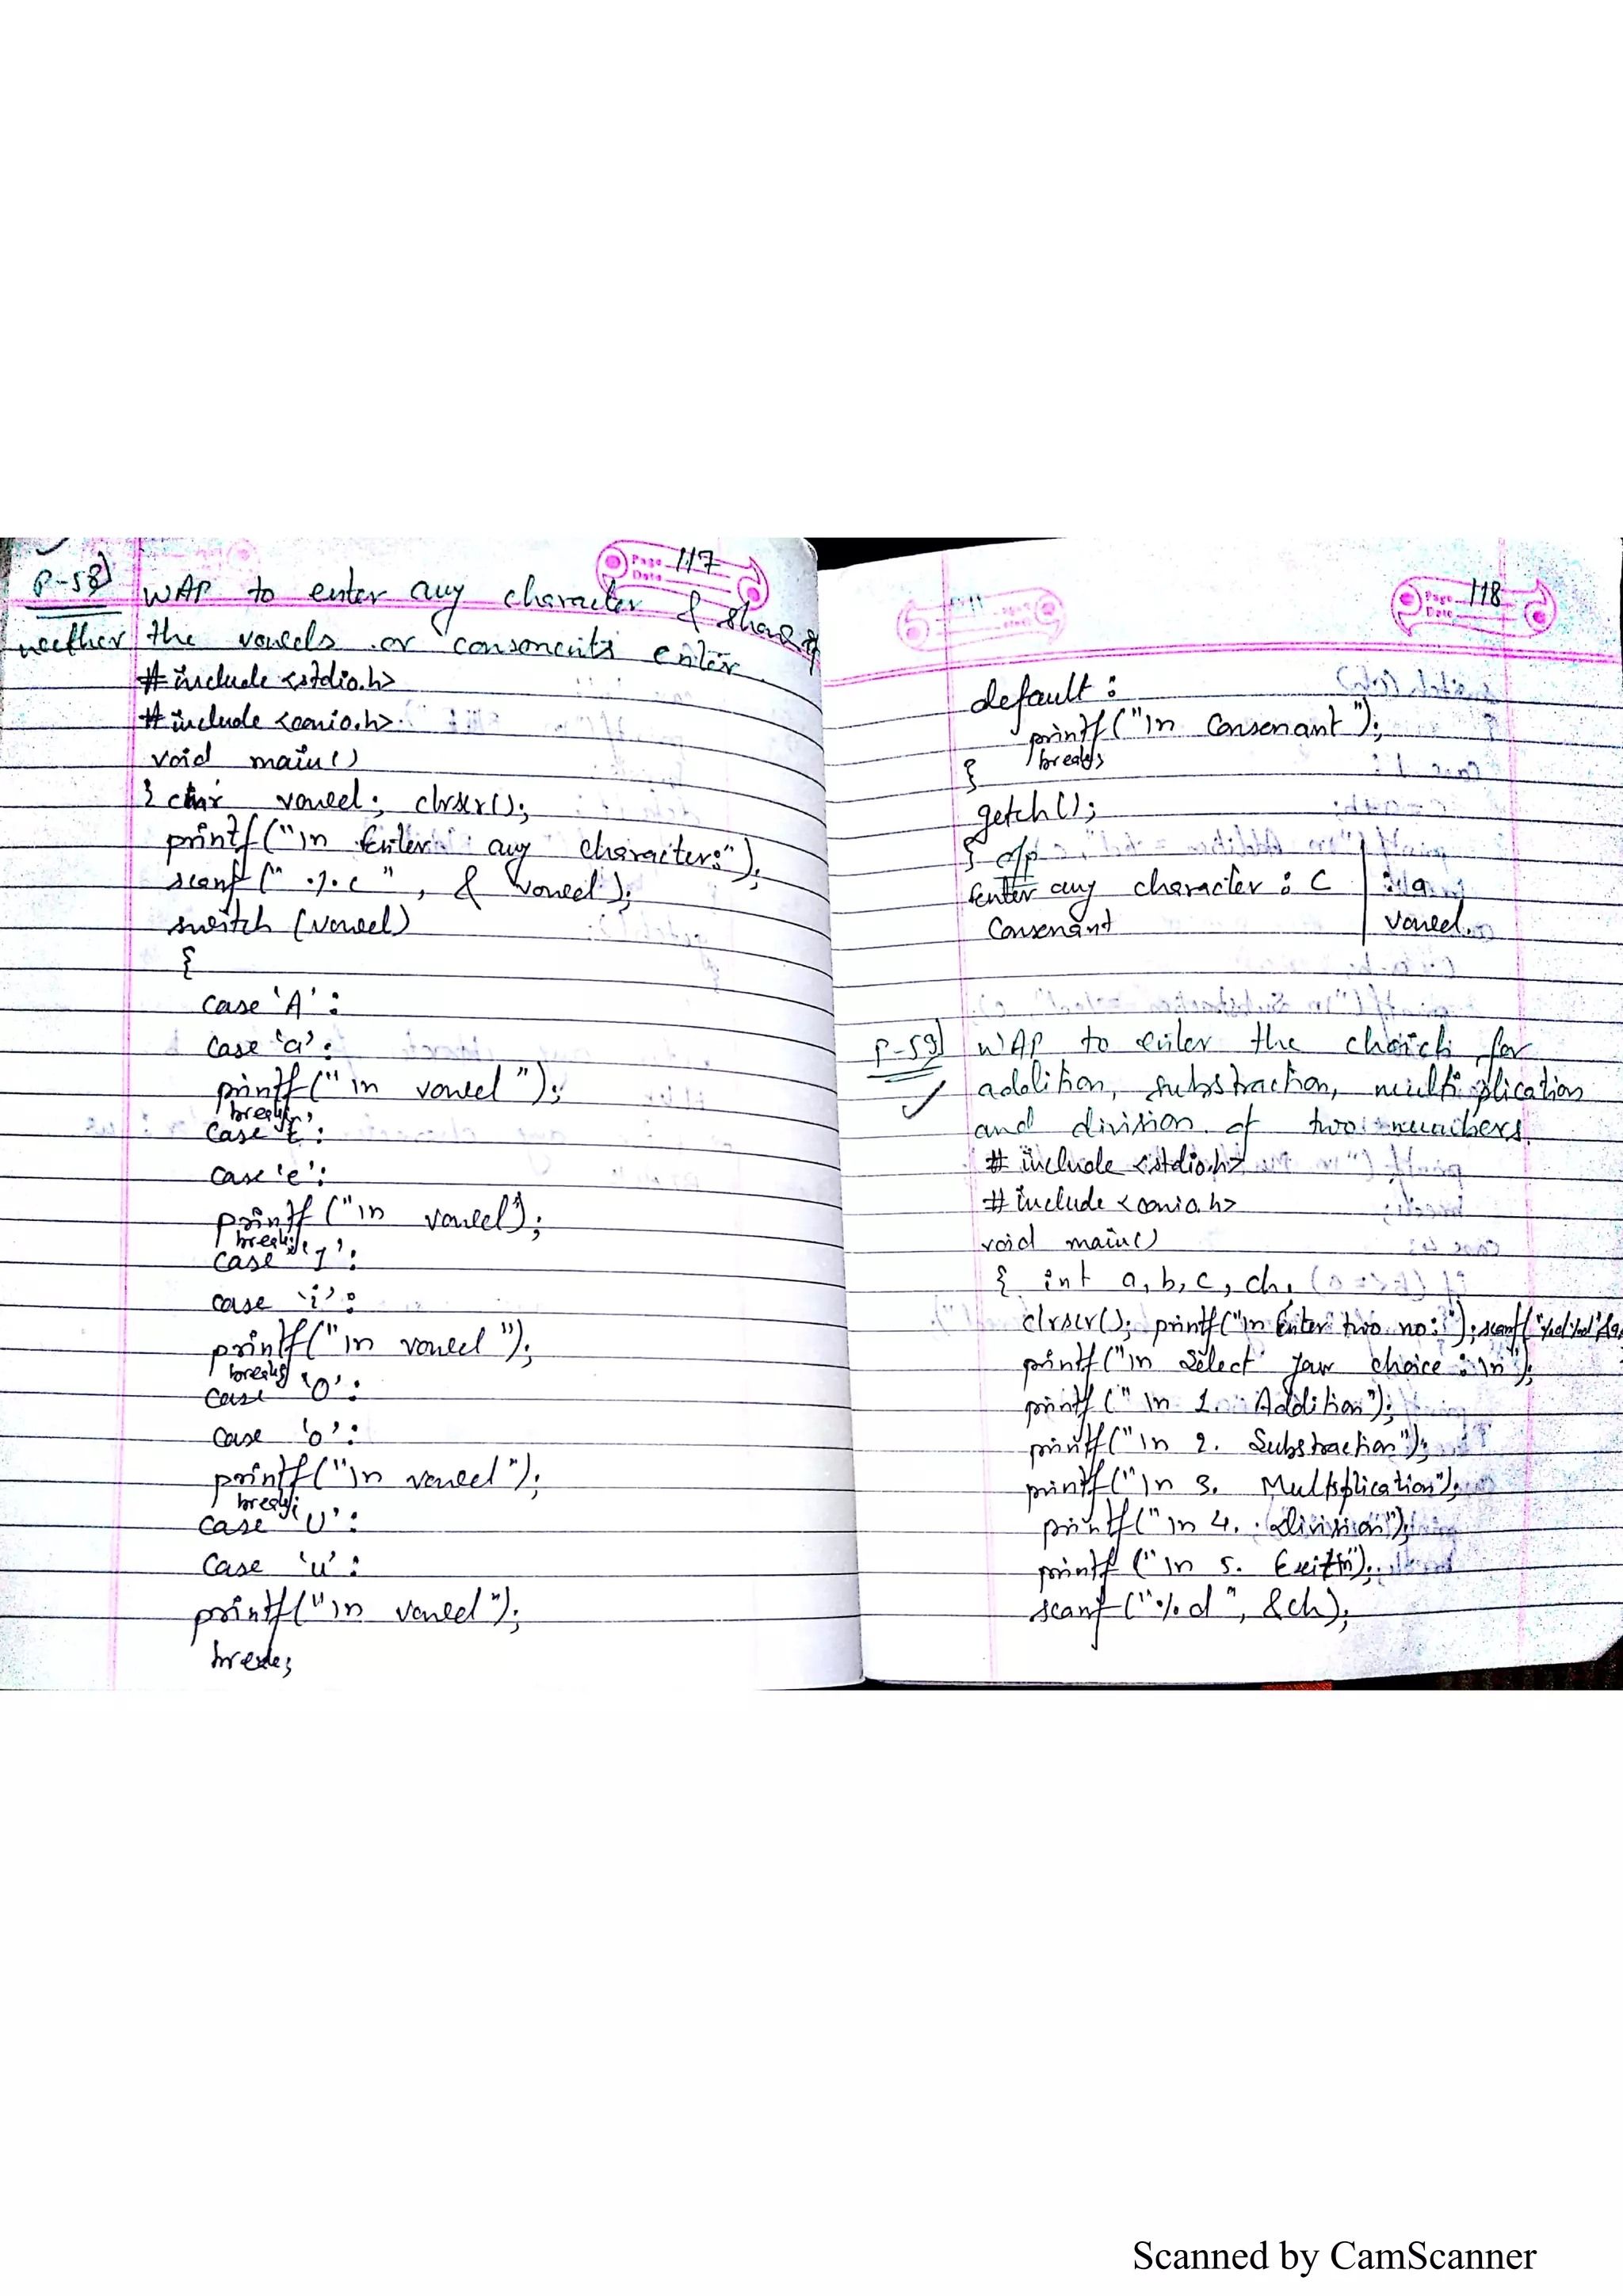 Page 117
Date
P-58] WAP to enter any character & show
wether the vowels or consonents enter.
#include <stdio.h>
#include <conio.h>
void main()
{ char vowel; clrscr();
printf("\n Enter any character:");
scanf(" %c ", & vowel);
switch (vowel)
{
case 'A' :
case 'a' :
printf("\n vowel");
break;
case 'E' :
case 'e' :
printf("\n vowel");
break;
case 'I' :
case 'i' :
printf("\n vowel");
break;
case 'O' :
case 'o' :
printf("\n vowel");
break;
case 'U' :
case 'u' :
printf("\n vowel");
break;
Page 118
Date
default :
printf("\n Consenant");
break;
}
getch();
} o/p
Enter any character : C | : a
Consenant | vowel.
P-59] WAP to enter the choich for
addition, substraction, multiplication
and division of two numbers.
# include <stdio.h>
# include <conio.h>
void main()
{ int a, b, c, ch;
clrscr(); printf("\n Enter two no: "); scanf("%d%d",&a,
printf("\n Select your choice : \n");
printf("\n 1. Addition");
printf("\n 2. Substraction");
printf("\n 3. Multiplication");
printf("\n 4. division");
printf("\n 5. Exit\n");
scanf("%d", &ch);
Scanned by CamScanner